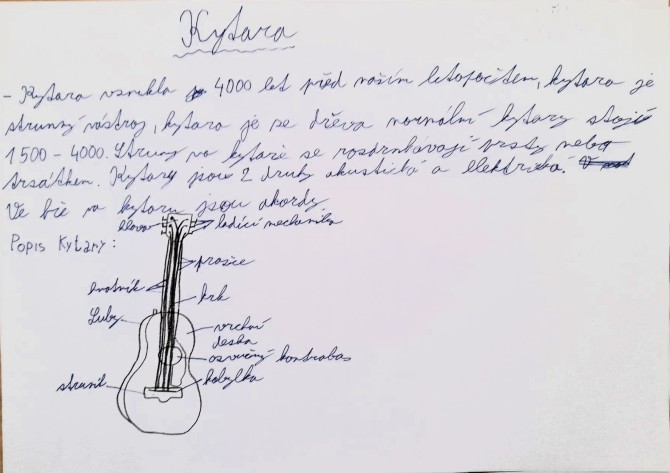 Kytara
- Kytara vznikla 4000 let před naším letopočtem, kytara je
strunný nástroj, kytara je se dřeva normální kytary stojí
1500 - 4000. Struny na kytaře se rozdrnkávají prsty nebo
trsátkem. Kytary jsou 2 druhy akustická a elektrická.
Ve hře na kytaru jsou akordy.
Popis Kytary:
hlava
ladící mechanika
pražce
hmatník
krk
Luby
vrchní
deska
ozvučný kontrabas
strunik
kobylka